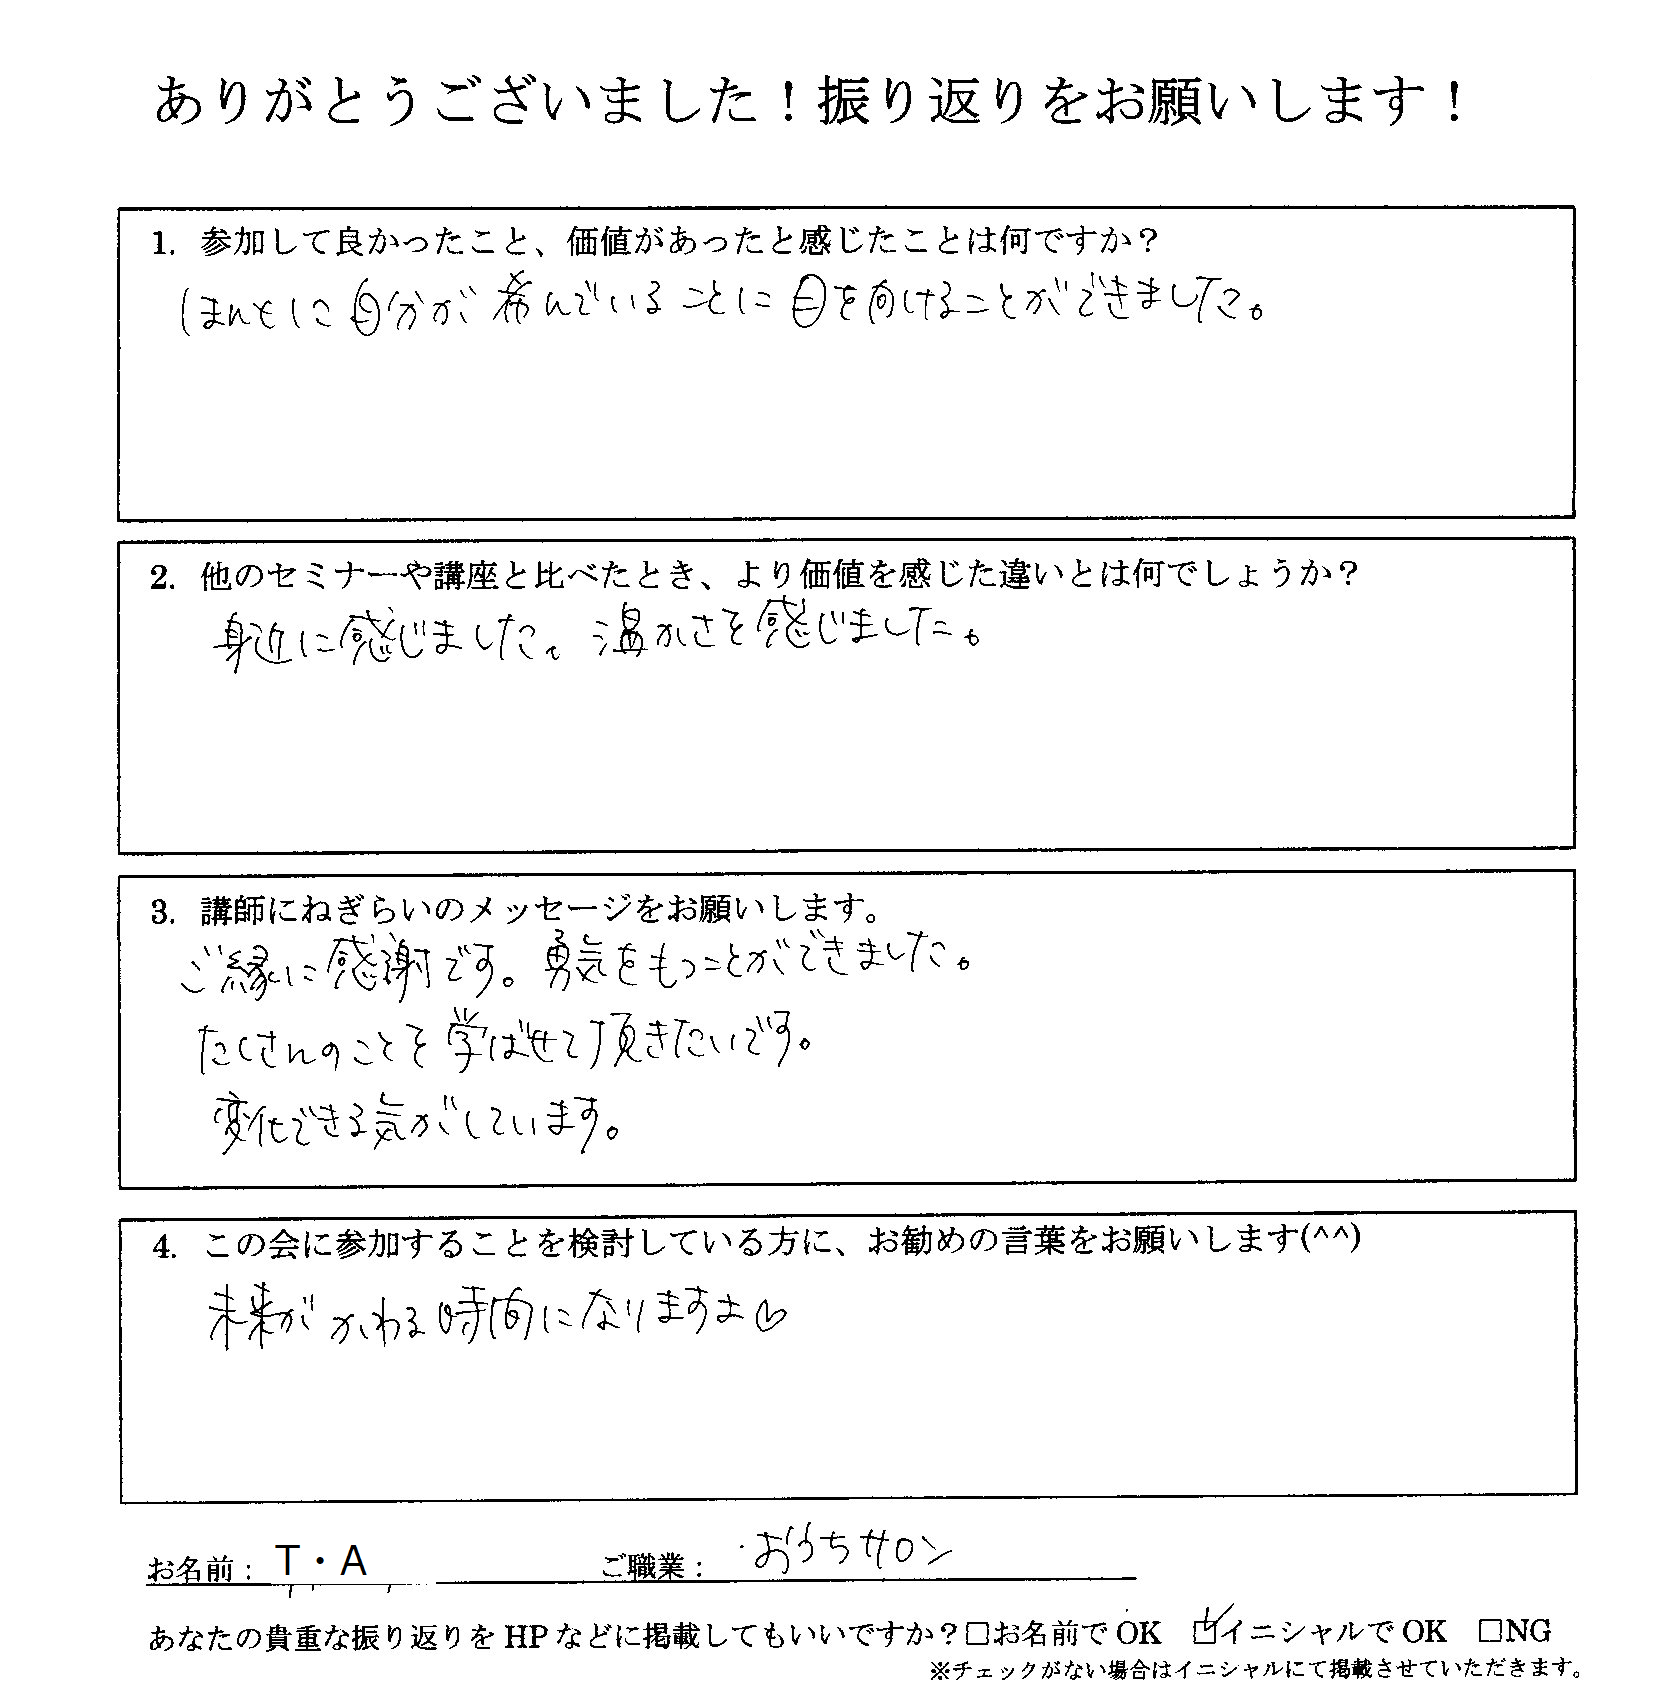 ありがとうございました！振り返りをお願いします！
1. 参加して良かったこと、価値があったと感じたことは何ですか？
ほんとに自分が希んでいることに目を向けることができました。
2. 他のセミナーや講座と比べたとき、より価値を感じた違いとは何でしょうか？
身近に感じました、温かさを感じました。
3. 講師にねぎらいのメッセージをお願いします。
ご縁に感謝です。勇気をもつことができました。
たくさんのことを学ばせて頂きたいです。
変化できる気がしています。
4. この会に参加することを検討している方に、お勧めの言葉をお願いします(^^)
未来がかわる時間になりますよ♡
お名前： T・A ご職業： おうちサロン
あなたの貴重な振り返りを HP などに掲載してもいいですか？□お名前で OK ☑イニシャルで OK □NG
※チェックがない場合はイニシャルにて掲載させていただきます。